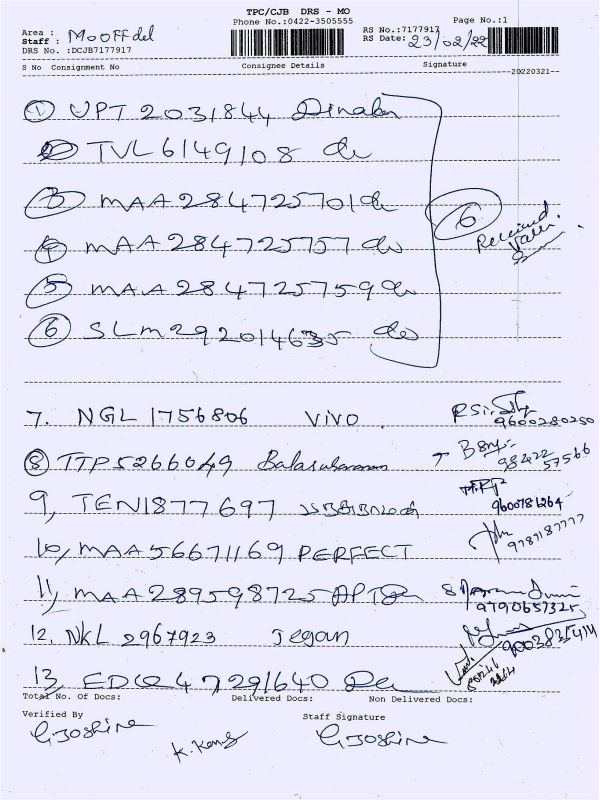 TPC/CJB DRS - MO
Phone No.:0422-3505555 Page No.:1
Area : MooFFdel RS No.:7177917
Staff : RS Date: 23/02/22
DRS No. :DCJB7177917
S No Consignment No Consignee Details Signature
20220321
1 UPT 2031844 Dinakar
2 TVL 6149108 do
3 MAA 284725701 do
4 MAA 284725757 do
6
Received
5 MAA 284725759 do
6 SLM 292014635 do
7. NGL 1756806 VIVO. 9600280250
8 TTP 5266049 Balasubaraman 98422 57566
9, TEN1877697 9600781264
10, MAA 56671169 PERFECT 9787187777
11, MAA 289598725 9790657325
12. NKL 2967923 Jegan
13, EDQ 4 7291640
Total No. Of Docs: Delivered Docs: Non Delivered Docs:
Verified By Staff Signature
G.Joshine K. Kang G.Joshine